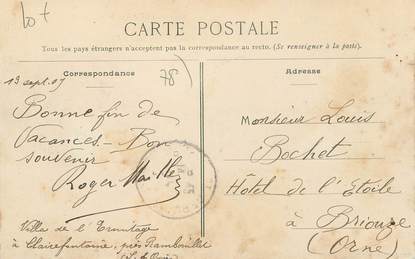 Lot
CARTE POSTALE
Tous les pays étrangers n'acceptent pas la correspondance au recto. (Se renseigner à la poste).
Correspondance
78
Adresse
13 sept. 07
Bonne fin de
Vacances - Bon
souvenir
Roger
Villa de l'Ermitage
à Clairefontaine, près Rambouillet
Monsieur Louis
Bochet
Hôtel de l'Etoile
à Briouze
(Orne)